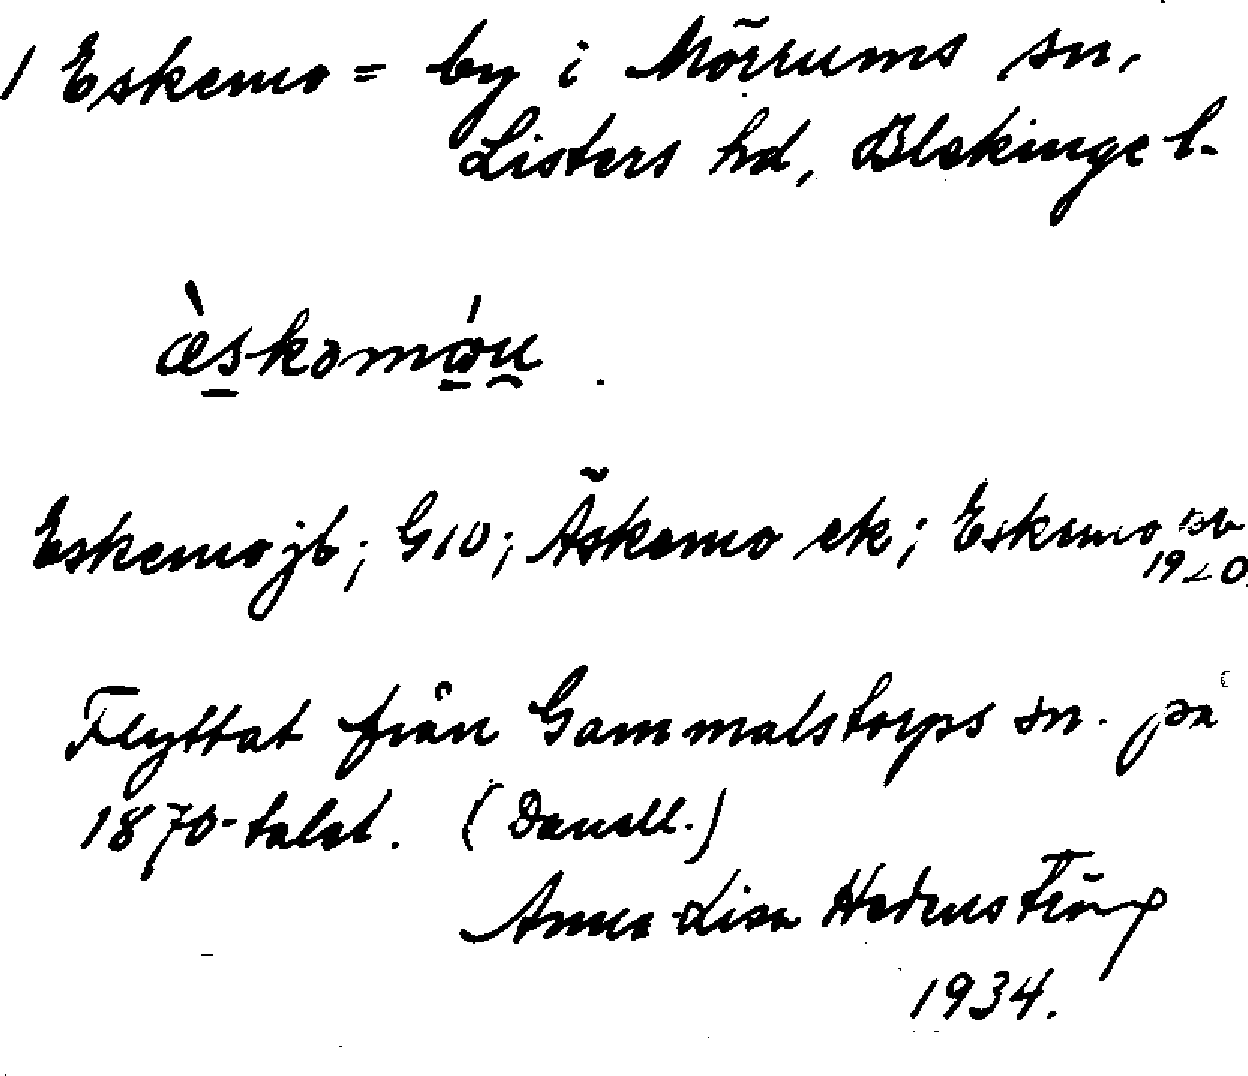 1 Eskemo = by i Mörrums sn,
Listers hd, Blekinge l.
æ̀skomǿu
Eskemo jb; G10; Äskemo ek; Eskemo pb
1920.
Flyttat från Gammalstorps sn. på
1870-talet. (Danell.)
Anna-Lisa Hedenström
1934.